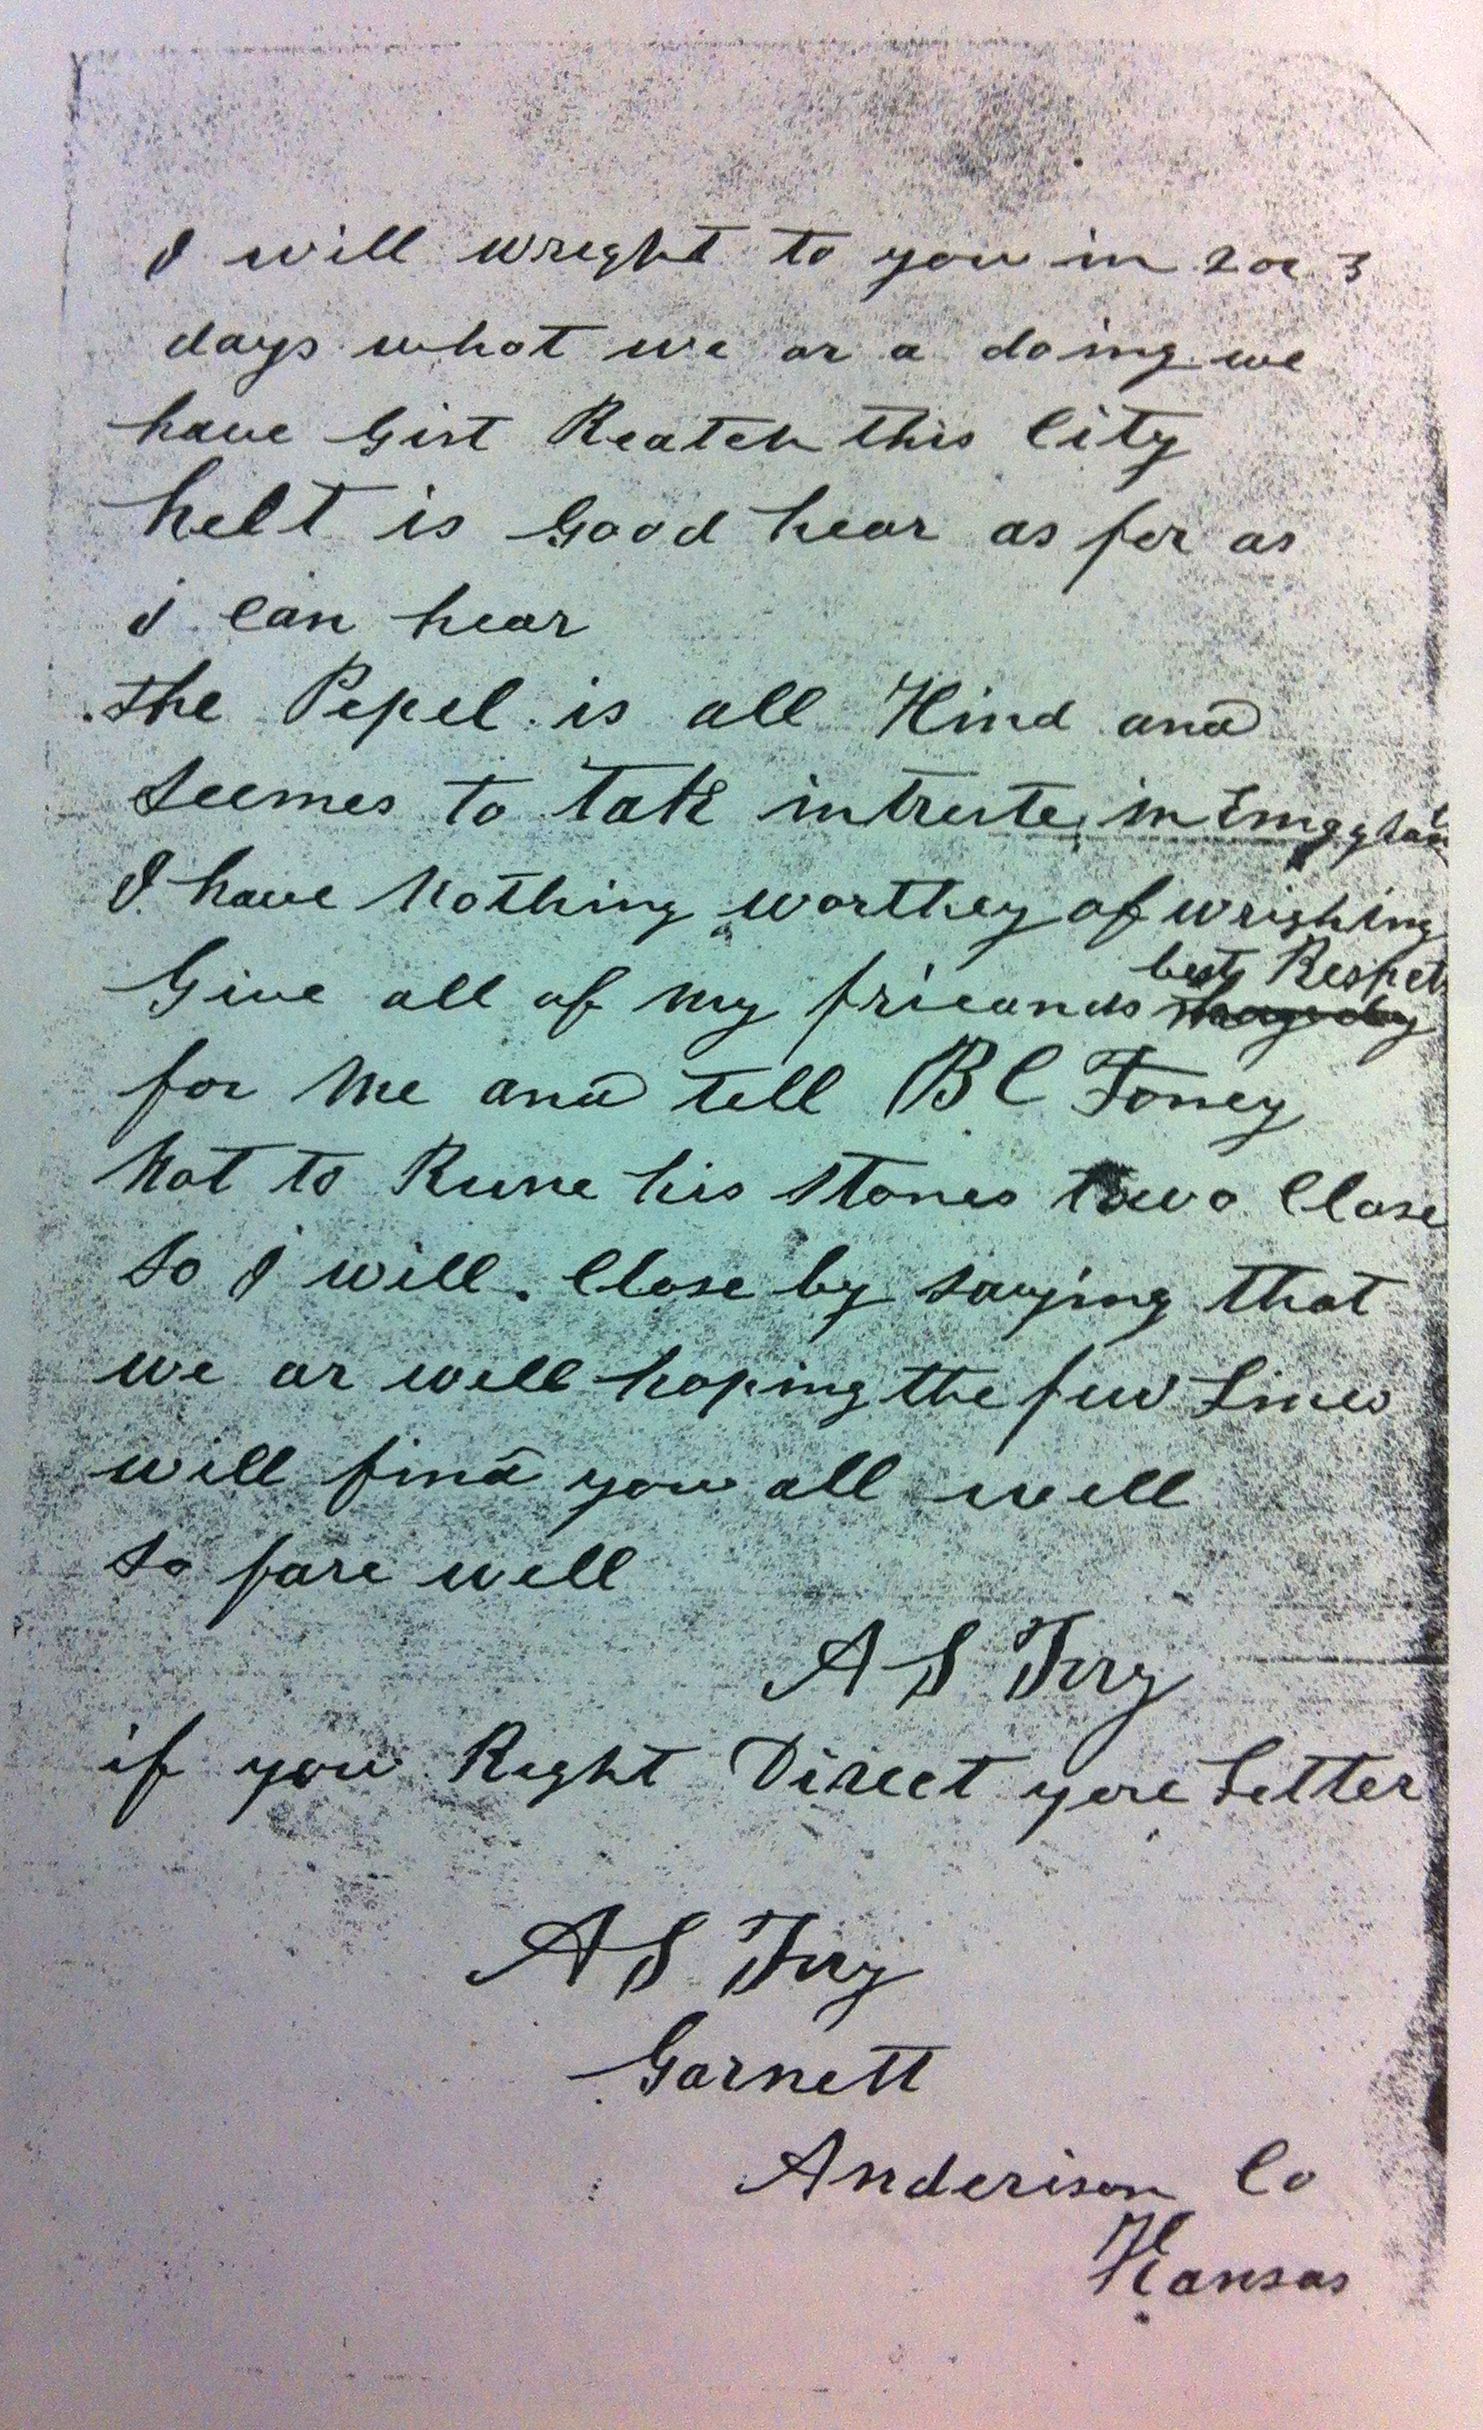 I will wreght to you in 2 or 3
days what we ar a doing we
have Gist Reatch this City
helt is Good hear as fer as
i can hear
the Pepel is all Kind and
seemes to take intreste in
I have Nothing worthey of wrighing
best Respet
Give all of my frieands
for Me and tell B C Toney
Not to Rune his stones towo Close
so I will. Close by saying that
we ar well hoping the few Lines
will find you all well
so fare well
A S
if you Right Direct yore Letter
A S
Garnett
Anderison Co
Kansas